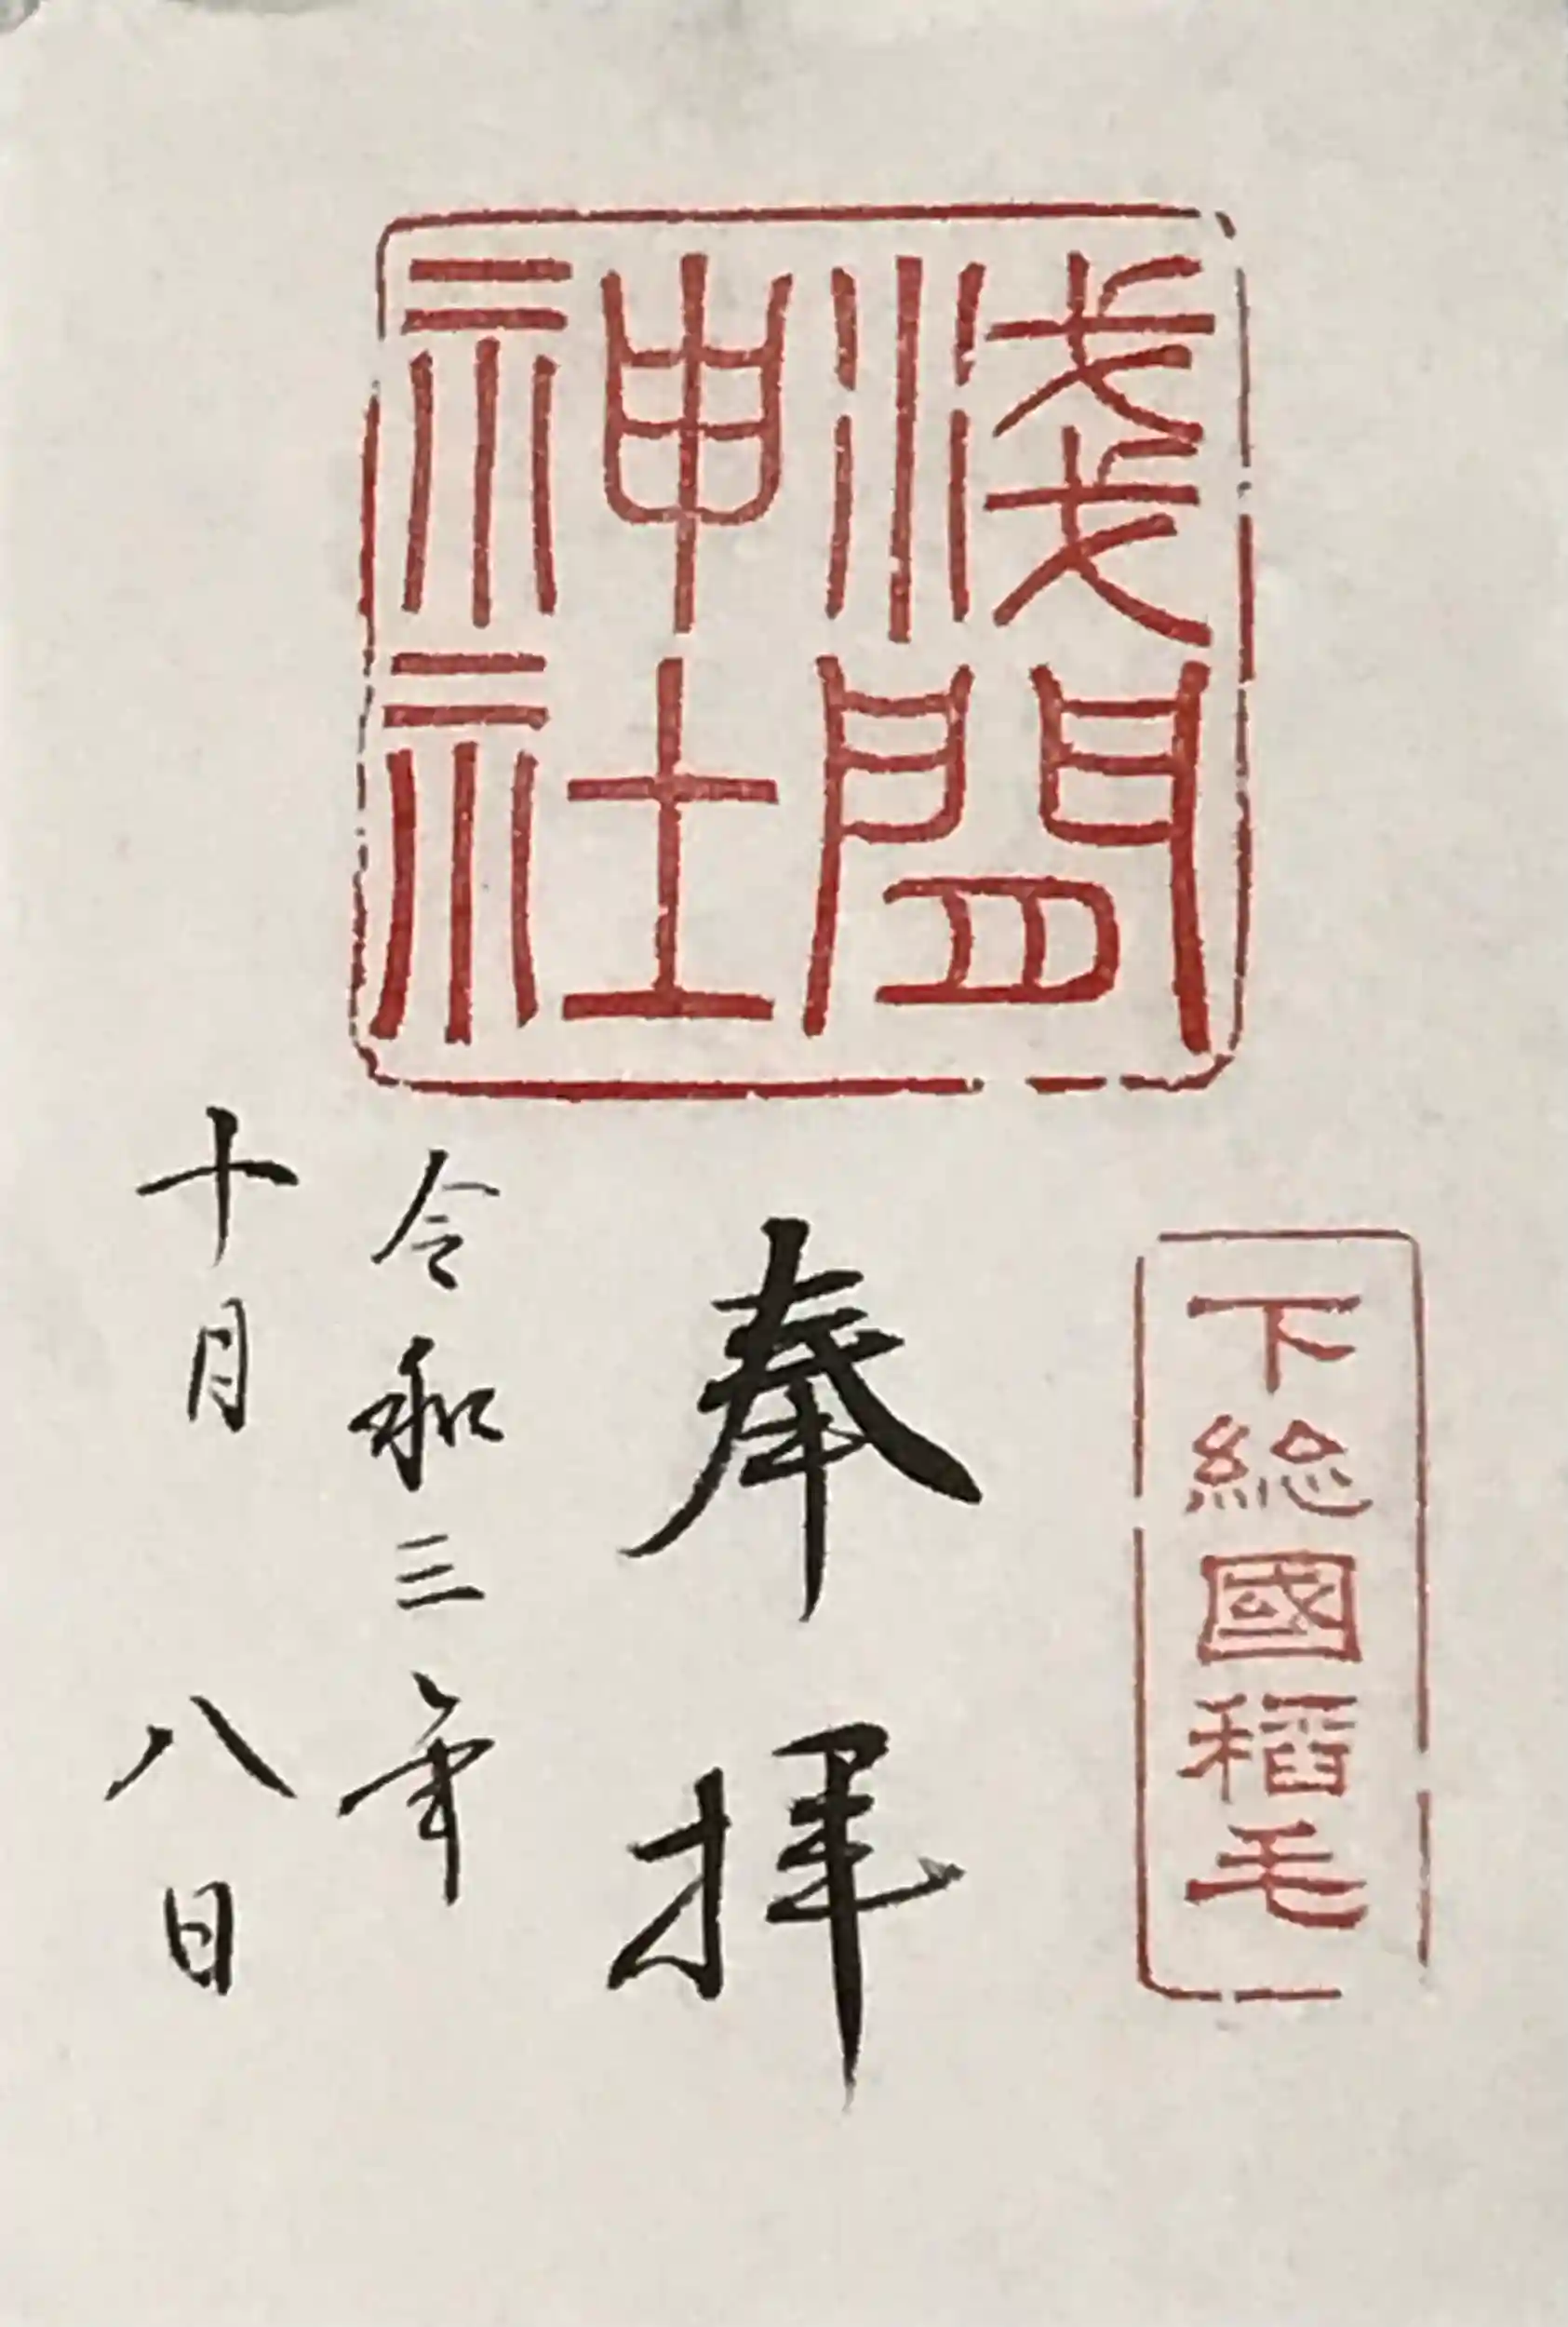 淺間
神社
下総國稻毛
奉拝
令和三年
十月八日